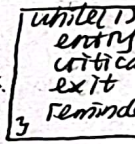 while(1)
entry
critica
exit
reminde
}